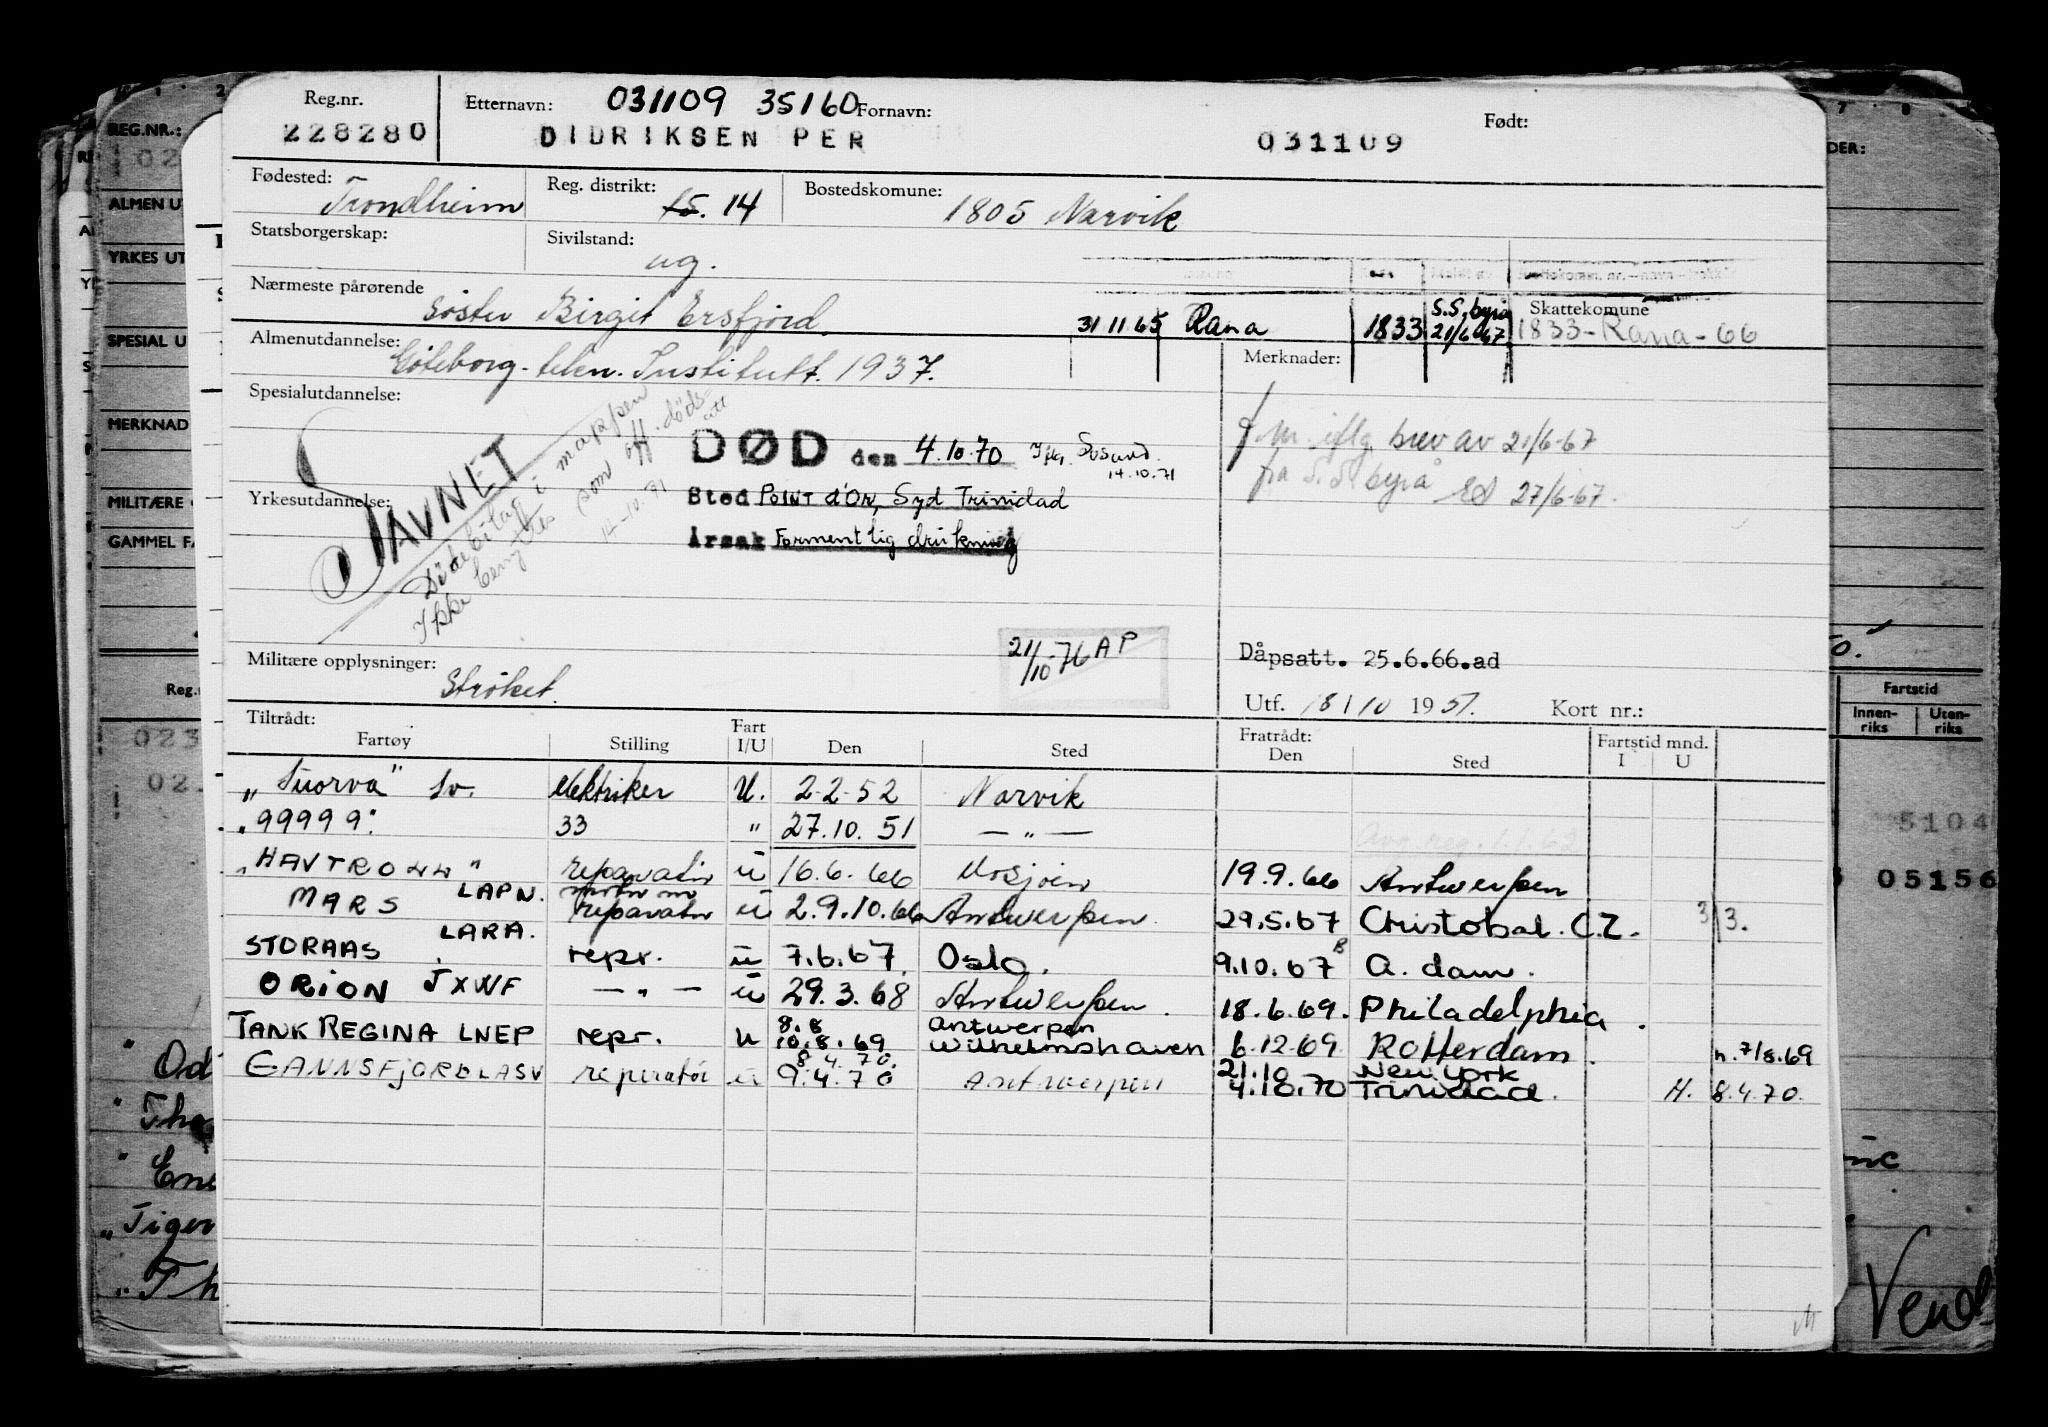 Reg.nr. Etternavn: 031109 35160 Fornavn: Født:
228280 DIDRIKSEN PER 031109
Fødested: Trondheim Reg. distrikt: 15. 14 Bostedskomune: 1805 Narvik
Statsborgerskap: Sivilstand: ug.
Nærmeste pårørende Søster Birgit Ersfjord
31 11 65 Rana 1833 S.S. byrå 21/6-67 Skattekomune 1833-Rana-66
Almenutdannelse: Göteborg-tekn. Institutt. 1937.
Merknader:
Spesialutdannelse:
fra S.S. byrå 27/6-67.
brev av 21/6-67
DØD den 4.10.70
14.10.71
Sted POINT d'OR, Syd Trinidad
Årsak Formentlig drukning
Yrkesutdannelse:
SAVNET
i mappen
Ikke benyttes som off. døds-
att
21/10-76 AP
Dåpsatt. 25.6.66.ad
Militære opplysninger: Strøket.
Utf. 18/10 1951. Kort nr.:
Tiltrådt: Fratrådt: Fartstid mnd.
Fartøy Stilling Fart I/U Den Sted Den Sted I U
"Suorva" Sv. elektriker U. 2-2-52 Narvik
"99999" 33 " 27.10.51 — " —
Avg.reg. 1.1.62
"HAVTROLL" reparatør u 16.6.66 Mosjøen 19.9.66 Antwerpen
MARS LAPN. reparatør u 2.9.10.66 Antwerpen. 29.5.67 Christobal. C.Z. 3/3.
STORAAS LARA. repr. u 7.6.67. Oslo. 9.10.67 A. dam.
ORION JXWF — " — u 29.3.68 Antwerpen. 18.6.69. Philadelphia.
TANK REGINA LNEP repr. u 8.8 10.8.69 Antwerpen Wilhelmshaven 6.12.69 Rotterdam. n. 7/8.69
GANNSFJORD LASV reperatør u 8.4.70. 9.4.70 Antwerpen 21.10 4.10.70 New York Trinidad. H. 8.4.70.
REG.NR.:
YRKES UT
SPESIAL U
MERKNAD
MILITÆRE
GAMMEL FA
DER:
Fartstid
Innen-riks Uten-riks
5104
05156
Vend